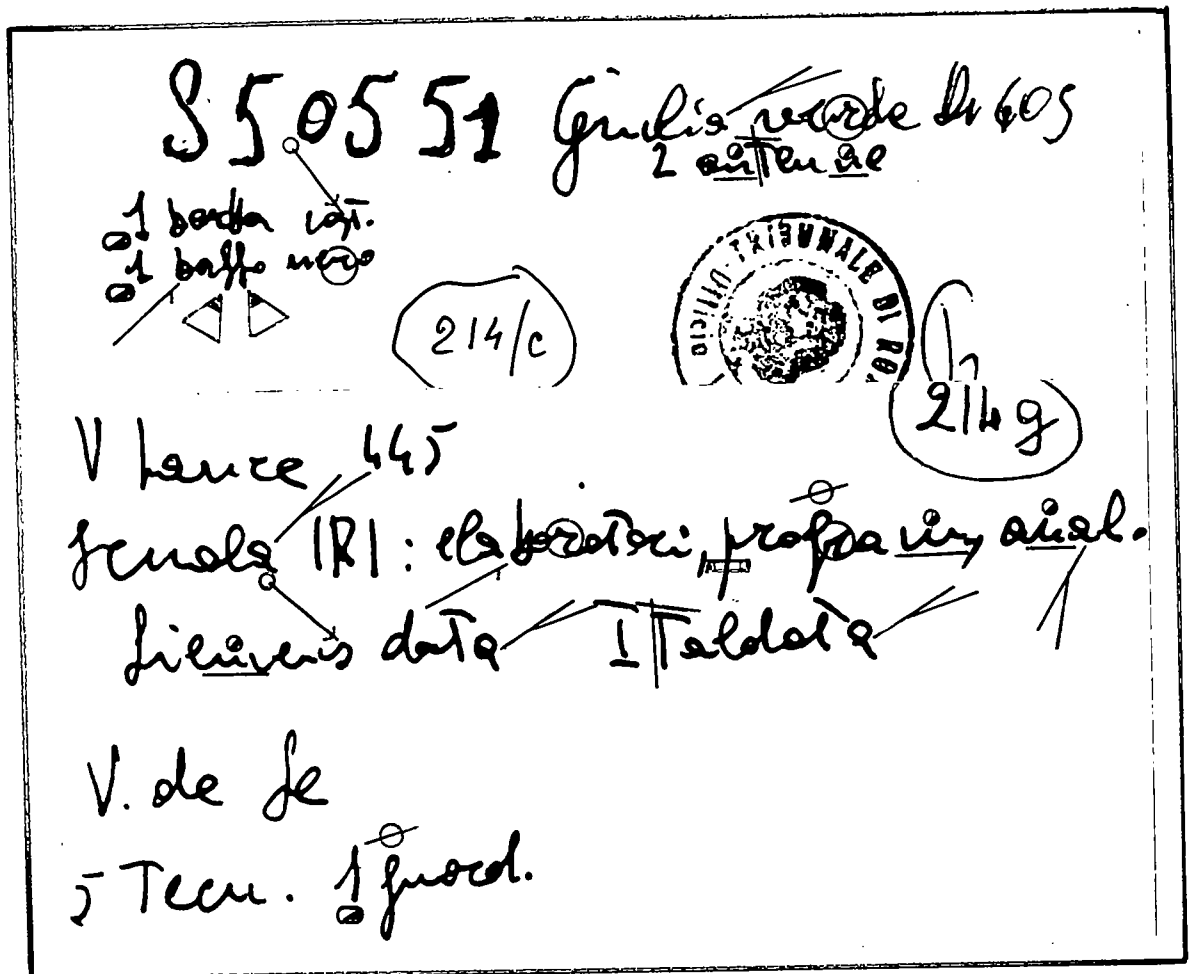 S50551 Giulia verde Dr 605
2 antenne
1 barba cast.
1 baffo nero
214/c
UFFICIO TRIBUNALE DI ROMA
214 g
V Laure 445
Scuola IRI: elaboratori, program, anal.
Siemens data Italdata
V. de Se
5 Tecn. 1 guard.